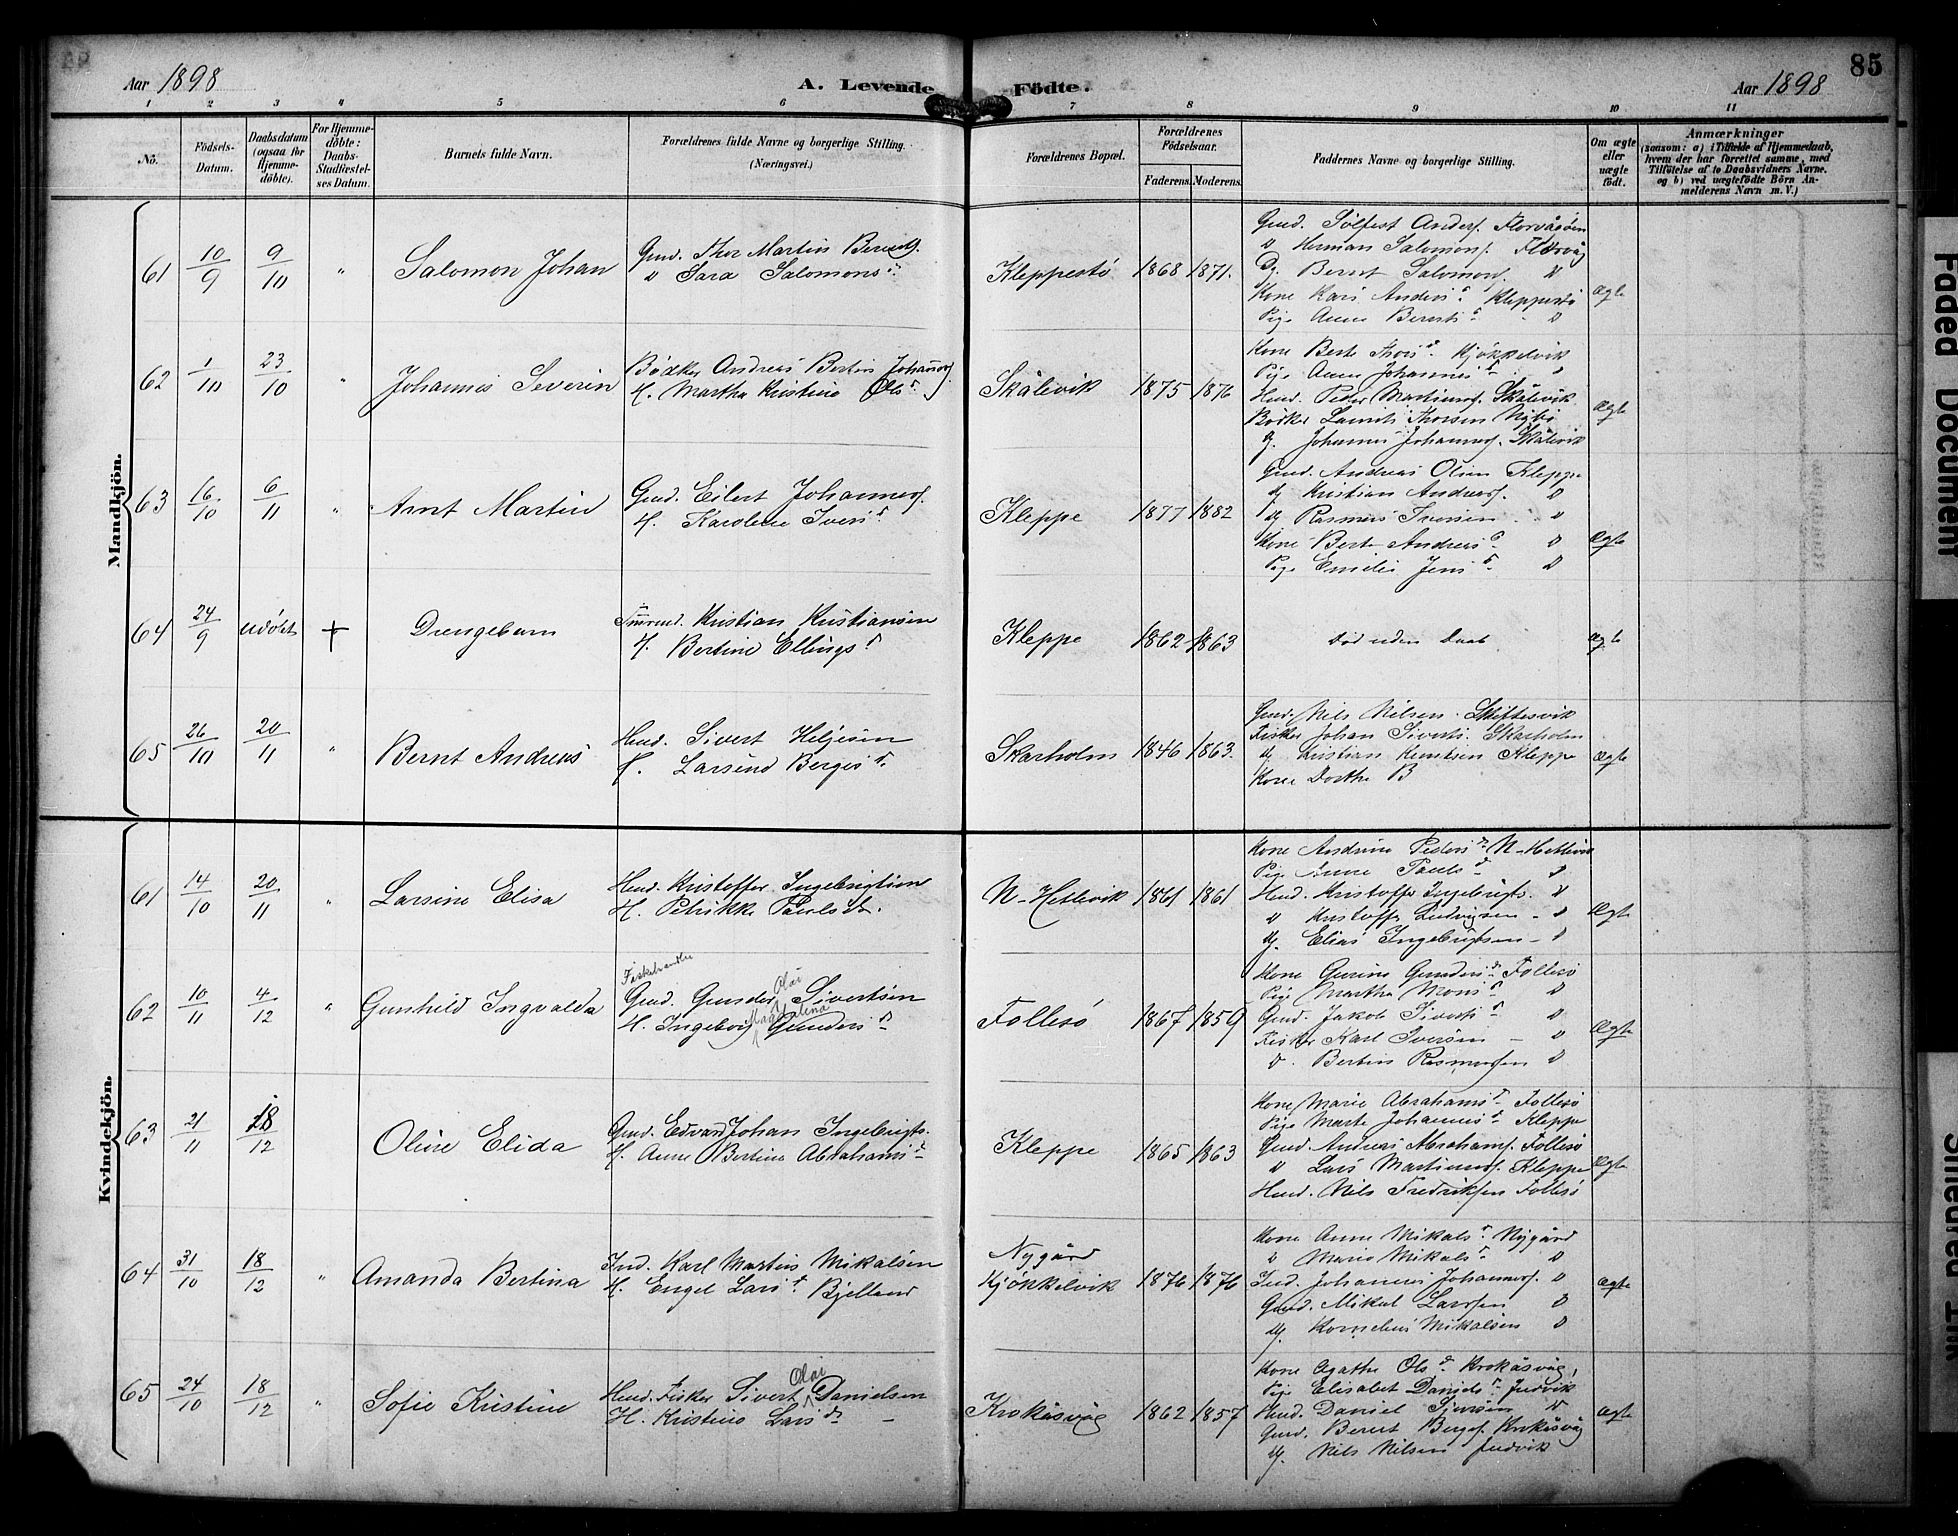 85
Aar 1898
A. Levende Fødte.
Aar 1898
1 2 3 4 5 6 7 8 9 10 11
No.
Fødsels-Datum.
Daabsdatum (ogsaa for Hjemme-døbte).
For Hjemme-døbte: Daabs-Stadfæstel-ses Datum.
Barnets fulde Navn.
Forældrenes fulde Navne og borgerlige Stilling. (Næringsvei.)
Forældrenes Bopæl.
Forældrenes Fødselsaar.
Faderens. Moderens.
Faddernes Navne og borgerlige Stilling.
Om ægte eller uægte født.
Anmærkninger
(saasom: a) i Tilfælde af Hjemmedaab, hvem der har forrettet samme, med Tilføielse af to Daabsvidners Navne. og b) ved uægtefødte Børn An-melderens Navn m. V.)
Mandkjön.
61 10/9 9/10 " Salomon Johan
Gmd. Thor Martin Berentg.
" Sara Salomons d.
Kleppestö 1868 1871.
Gmd. Sølfest Anders. Florvåsöen
" Herman Salomons. Florvåg
Dj. Bernt Salomons. "
Kone Kari Anders d. Kleppestö
Pige Anna Bernts d. "
Ægte
62 1/10 23/10 " Johannes Severin
Bödker Andreas Bertin Johanns.
H. Martha Kristine Ols d.
Skålevik 1875 1876
Kone Berte Thors d. Kjökkelvik
Pige Anna Johannes d. "
Hmd. Peder Martinus. Skålevik
Bödker Laurits Thorsen Nybö
dj. Johannes Johannes. Skålevik
Ægte
63 16/10 6/11 " Arnt Martin
Gmd. Eilert Johannes.
H. Karoline Ivers d.
Kleppe 1877 1882
Gmd. Andreas Olsen Kleppe
dj Kristian Andreas. "
dj Rasmus Iversen "
Kone Berte Andreas d. "
Pige Emilie Jens d. "
Ægte
64 24/9 udöbt + Drengebarn
Kristian Kristiansen
H. Bertine Ellings d.
Kleppe 1862 1863
Död uden Daab
Ægte
65 26/10 20/11 " Bernt Andreas
Hmd. Sivert Heljesen
H. Larsine Berges d.
Skarholm 1846 1863.
Gmd. Nils Nilsen. Skiftesvik
Fisker Johan Siverts. Skarholm
dj Kristian Knutsen Kleppe
Kone Dorthe B
Ægte
Kvindekjön.
61 14/10 20/11 " Larsine Elisa
Hmd. Kristoffer Ingebrigtsen
H. Petrikke Pauls dt.
N-Hetlevik 1861 1861
Kone Andrine Peders d. N-Hetlevik
Pige Anne Pauls d. "
Hmd. Kristoffer Ingebrigts. "
" Kristoffer Ludvigsen - "
dj. Elias Ingebrigtsen - "
Ægte
62 10/11 4/12 " Gunhild Ingvalda
Fiskehandler
Gmd. Gunder Olai Sivertsen
H. Ingeborg Magdalena Gunders d.
Follesö 1867 1859
Kone Gurine Gunders d. Follesö
Pige Martha Mons d. "
Gmd. Jakob Siverts. "
Fisker Karl Iversen - "
". Bertin Rasmussen "
Ægte
63 21/11 18/12 Oline Elida
Gmd. Edvard Johan Ingebrigts.
H. Anne Bertine Abrahams d.
Kleppe 1865 1863
Kone Marie Abrahams d. Follesö
Pige Marte Johannes d. Kleppe
Gmd Andreas Abrahams. Follesö
" Lars Martinus. Kleppe
Hmd. Nils Fredriksen Follesö
Ægte
64 31/10 18/12 " Amanda Bertina
Ind. Karl Martin Mikalsen
H. Engel Lars d. Bjelland
Nygård
Kjönkelvik 1876 1876
Kone Anne Mikals d. Nygård
" Marie Mikals d. "
Ind. Johannes Johannes. "
Gmd. Mikal Larsen "
dj. Kornelius Mikalsen "
Ægte
65 24/10 18/12 " Sofie Kristine
Hmd. Fisker Sivert Olai Danielsen
H. Kristine Lars d. -
Krokåsvåg 1862 1857
Kone Agathe Ols d. Krokåsvåg,
Pige Elisabet Daniels d. Judvik
Hmd. Daniel Sjursen "
Gmd. Bernt Berges. Krokåsvåg
dj. Nils Nilsen Judvik
Ægte
Faded Document
Smeared Ink